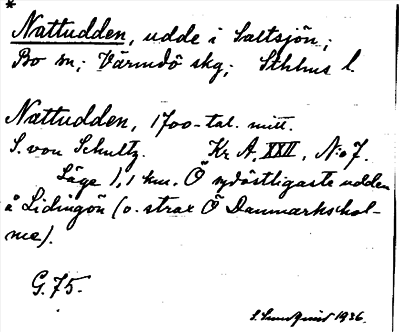 *
Nattudden, udde i Saltsjön;
Bo sn; Värmdö skg; Sthlms l.
Nattudden, 1700-tal. mitt.
S. von Schultz. Kr A, XXII, N:o 7.
Läge 1,1 km. Ö sydöstligaste udden
å Lidingön (o. strax Ö Danmarkshol-
me).
G. 75.
S. Sundquist 1936.